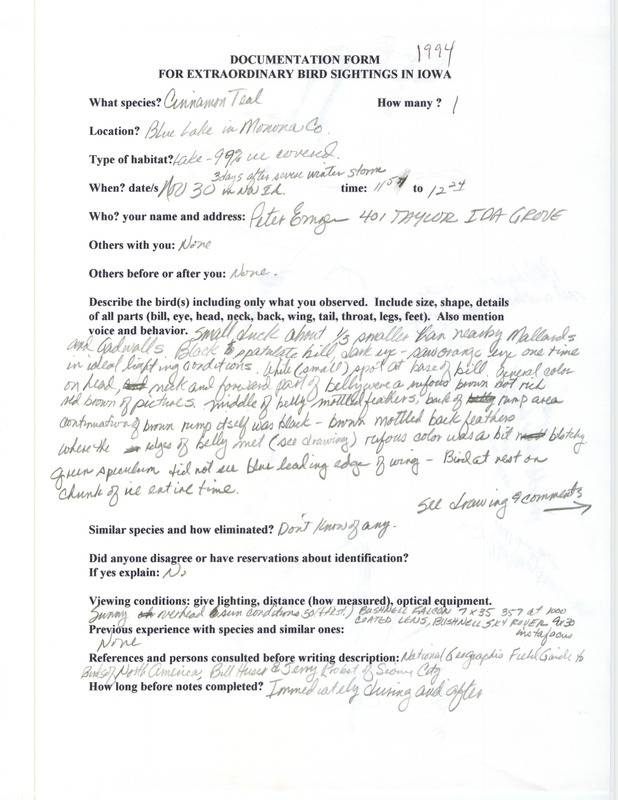 1994
DOCUMENTATION FORM
FOR EXTRAORDINARY BIRD SIGHTINGS IN IOWA
What species? Cinnamon Teal How many ? 1
Location? Blue Lake in Monona Co.
Type of habitat? Lake - 99% ice covered.
3 days after severe winter storm
When? date/s Nov 30 in NW IA. time: 11 57 to 12 24
Who? your name and address: Peter 401 TAYLOR IDA GROVE
Others with you: None
Others before or after you: None.
Describe the bird(s) including only what you observed. Include size, shape, details
of all parts (bill, eye, head, neck, back, wing, tail, throat, legs, feet). Also mention
voice and behavior. Small duck about 1/3 smaller than nearby Mallards
and Gadwalls. Black spatulate bill, dark eye - saw orange eye one time
in ideal lighting conditions. White (small) spot at base of bill. General color
on head, neck and forward part of belly were a rufous brown not rich
red brown of pictures. Middle of belly mottled feathers, back of rump area
continuation of brown rump itself was black - brown mottled back feathers
where the edges of belly met (see drawing) rufous color was a bit blotchy
green speculum did not see blue leading edge of wing - Bird at rest on
chunk of ice entire time.
See drawing & comments
Similar species and how eliminated? Don't know of any.
Did anyone disagree or have reservations about identification?
If yes explain: No
Viewing conditions: give lighting, distance (how measured), optical equipment.
Sunny overhead sun conditions BUSHNELL FALCON 7x35 357 at 1000
COATED LENS, BUSHNELL SKY ROVER 9x30
Previous experience with species and similar ones: instafocus
None
References and persons consulted before writing description: National Geographic Field Guide to
Birds of North America, Bill Huser & Jerry Probst of Sioux City
How long before notes completed? Immediately during and after